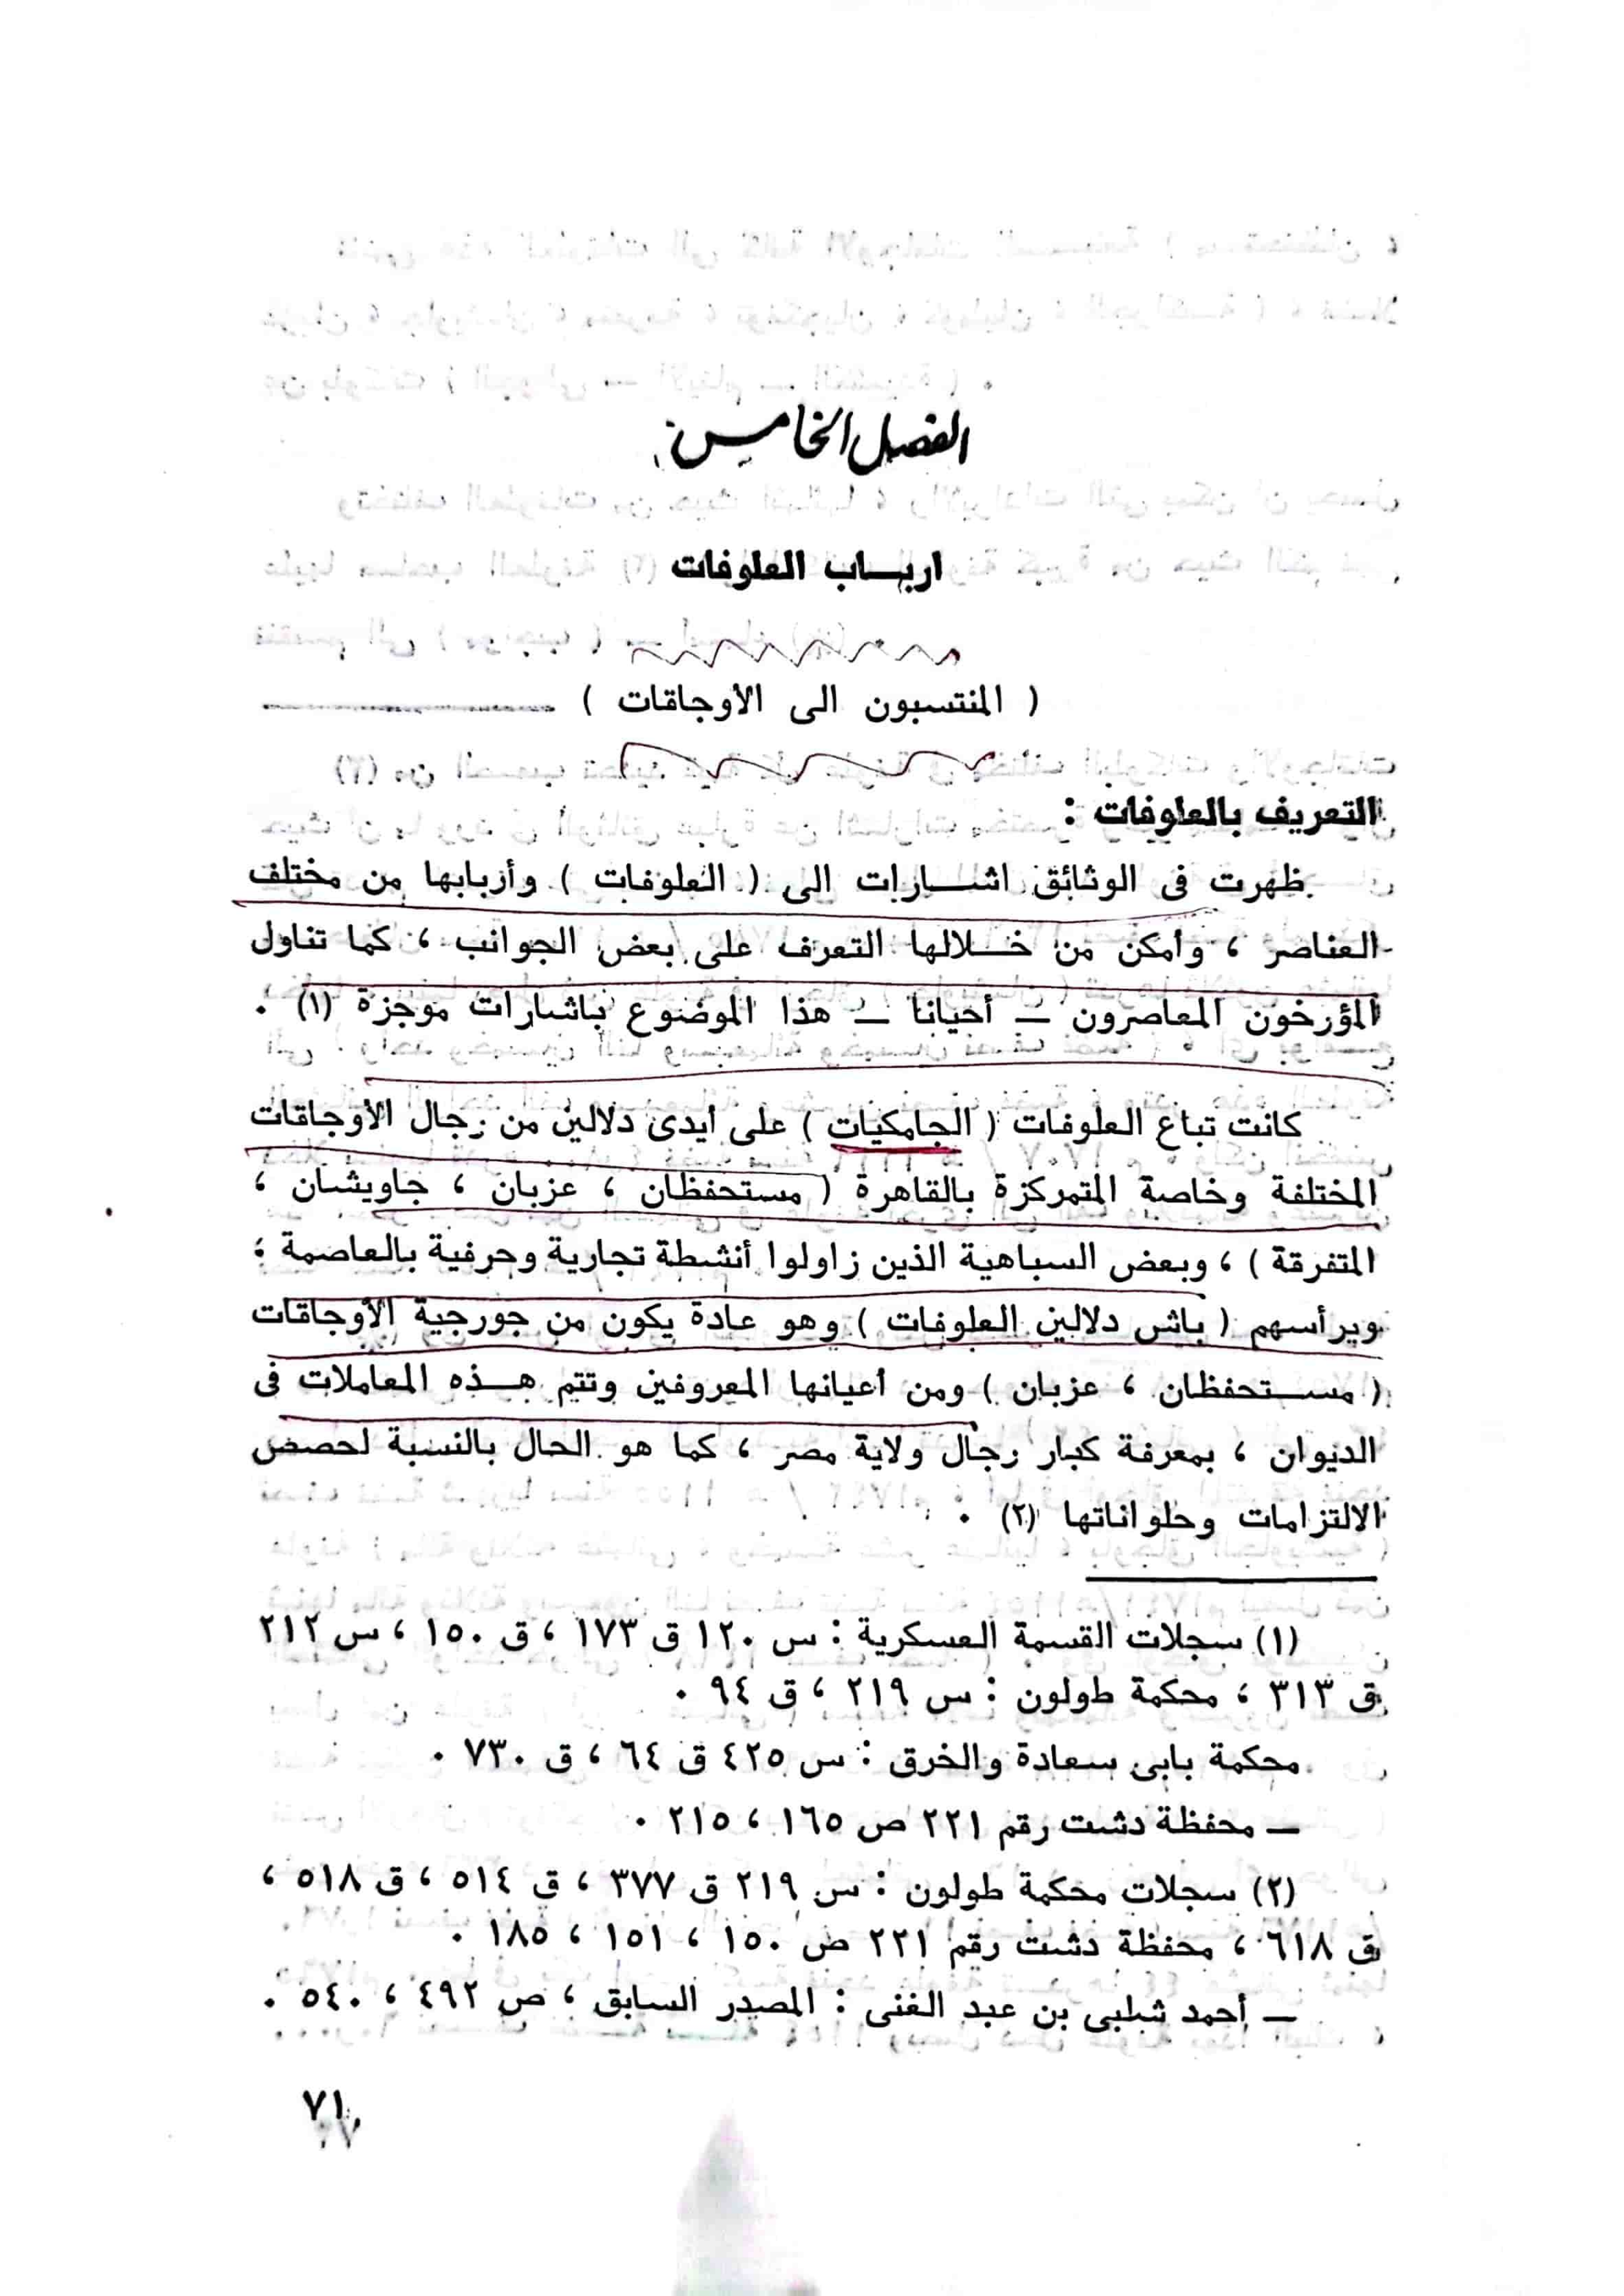 الفصل الخامس
اربــاب العلوفات
( المنتسبون الى الأوجاقات )
التعريف بالعلوفات :
ظهرت فى الوثائق اشــارات الى ( العلوفات ) وأربابها من مختلف
العناصر ، وأمكن من خــلالها التعرف على بعض الجوانب ، كما تناول
المؤرخون المعاصرون ــ أحيانا ــ هذا الموضوع باشارات موجزة (١) .
كانت تباع العلوفات ( الجامكيات ) على أيدى دلالين من رجال الأوجاقات
المختلفة وخاصة المتمركزة بالقاهرة ( مستحفظان ، عزبان ، جاويشان ،
المتفرقة ) ، وبعض السباهية الذين زاولوا أنشطة تجارية وحرفية بالعاصمة ؛
ويرأسهم ( باش دلالين العلوفات ) وهو عادة يكون من جورجية الأوجاقات
( مســتحفظان ، عزبان ) ومن أعيانها المعروفين وتتم هــذه المعاملات فى
الديوان ، بمعرفة كبار رجال ولاية مصر ، كما هو الحال بالنسبة لحصص
الالتزامات وحلواناتها (٢) .
(١) سجلات القسمة العسكرية : س ١٢٠ ق ١٧٣ ، ق ١٥٠ ، س ٢١٢
ق ٣١٣ ، محكمة طولون : س ٢١٩ ، ق ٩٤ .
محكمة بابى سعادة والخرق : س ٤٢٥ ق ٦٤ ، ق ٧٣٠ .
ــ محفظة دشت رقم ٢٢١ ص ١٦٥ ، ٢١٥ .
(٢) سجلات محكمة طولون : س ٢١٩ ق ٣٧٧ ، ق ٥١٤ ، ق ٥١٨ ،
ق ٦١٨ ، محفظة دشت رقم ٢٢١ ص ١٥٠ ، ١٥١ ، ١٨٥ .
ــ أحمد شلبى بن عبد الغنى : المصدر السابق ، ص ٤٩٢ ، ٥٤٠ .
٧١